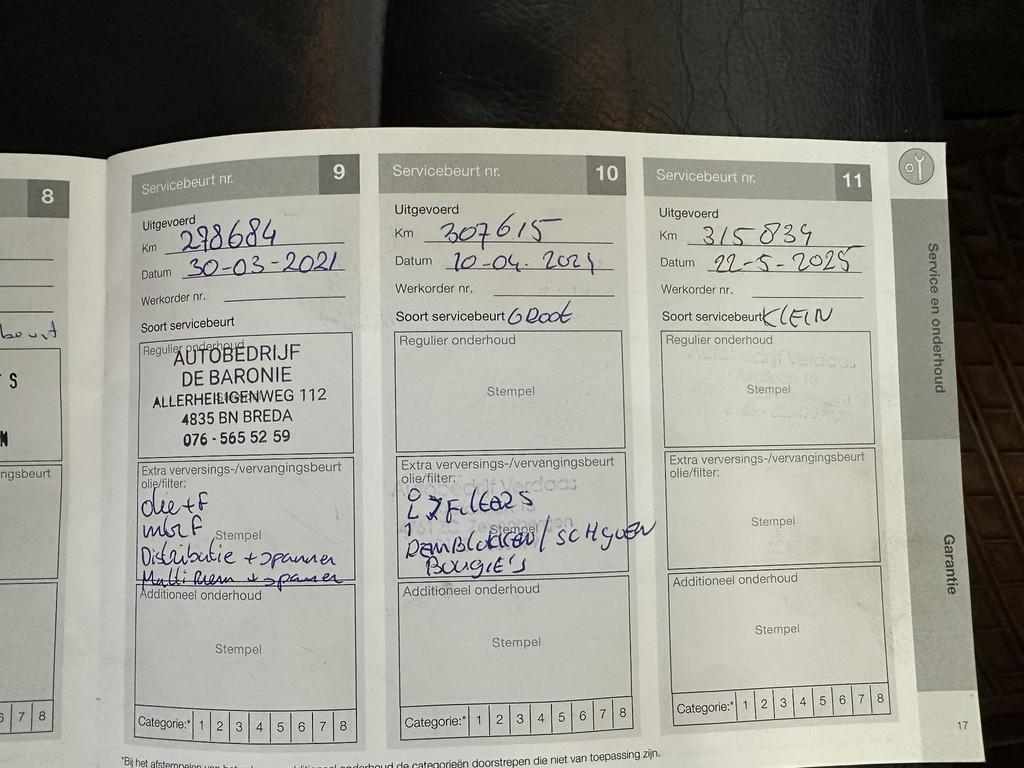 8
S
N
7 8
Servicebeurt nr. 9
Uitgevoerd
Km 278684
Datum 30-03-2021
Werkorder nr.
Soort servicebeurt
Regulier onderhoud
AUTOBEDRIJF
DE BARONIE
ALLERHEILIGENWEG 112
4835 BN BREDA
076 - 565 52 59
Extra verversings-/vervangingsbeurt
olie/filter:
olie+f
Stempel
Distributie + spanner
Multi riem + spanner
Additioneel onderhoud
Stempel
Categorie:* 1 2 3 4 5 6 7 8
Servicebeurt nr. 10
Uitgevoerd
Km 307615
Datum 10-04-2024
Werkorder nr.
Soort servicebeurt GROOT
Regulier onderhoud
Stempel
Extra verversings-/vervangingsbeurt
olie/filter:
Autobedrijf Verdaas
FILTERS
Stempel
REMBLOKKEN/SCHIJVEN
BOUGIE'S
Additioneel onderhoud
Stempel
Categorie:* 1 2 3 4 5 6 7 8
Servicebeurt nr. 11
Uitgevoerd
Km 315834
Datum 22-5-2025
Werkorder nr.
Soort servicebeurt KLEIN
Regulier onderhoud
Autobedrijf Verdaas
Stempel
Extra verversings-/vervangingsbeurt
olie/filter:
Stempel
Additioneel onderhoud
Stempel
Categorie:* 1 2 3 4 5 6 7 8
Service en onderhoud
Garantie
17
onderhoud de categorieën doorstrepen die niet van toepassing zijn.